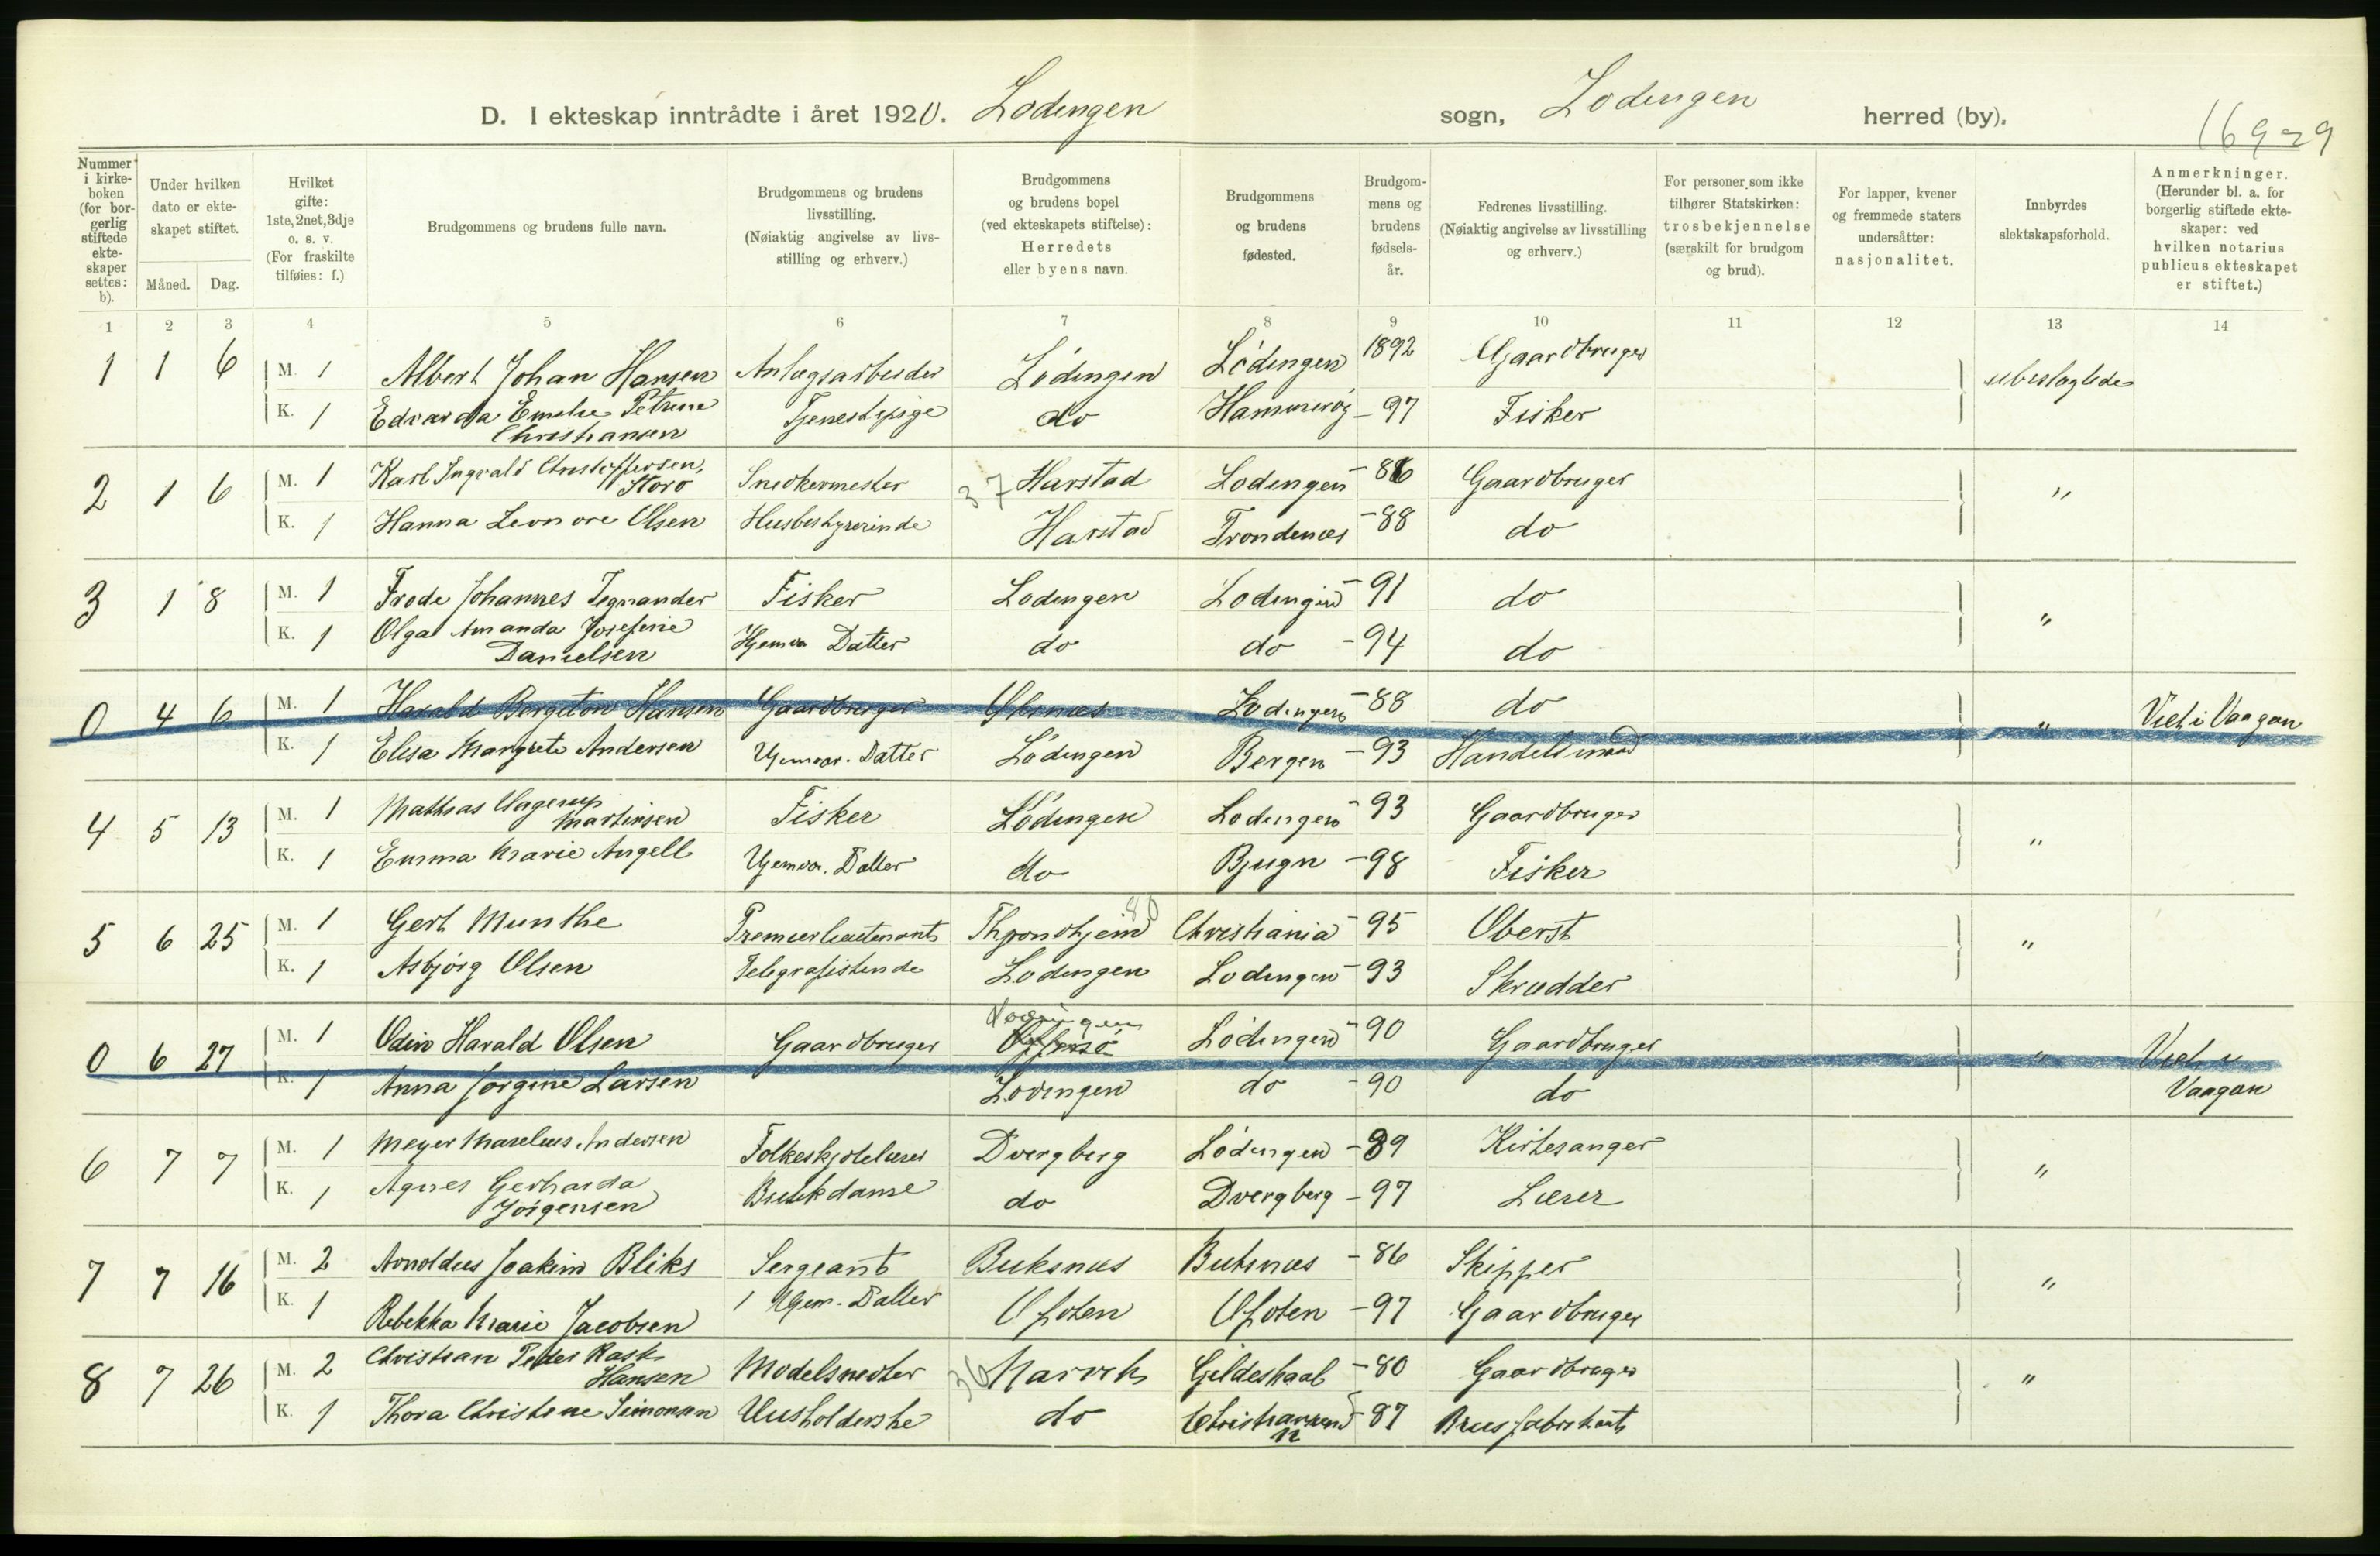 D. I ekteskap inntrådte i året 1920. Lodingen sogn, Lodingen herred (by).
16929
Nummer i kirkeboken (for borgerlig stiftede ekteskaper settes: b).
Under hvilken dato er ekteskapet stiftet.
Måned. Dag.
Hvilket gifte: 1ste, 2net, 3dje o. s. v. (For fraskilte tilføies: f.)
Brudgommens og brudens fulle navn.
Brudgommens og brudens livsstilling. (Nøiaktig angivelse av livsstilling og erhverv.)
Brudgommens og brudens bopel (ved ekteskapets stiftelse): Herredets eller byens navn.
Brudgommens og brudens fødested.
Brudgommens og brudens fødselsår.
Fedrenes livsstilling. (Nøiaktig angivelse av livsstilling og erhverv.)
For personer som ikke tilhører Statskirken: trosbekjennelse (særskilt for brudgom og brud).
For lapper, kvener og fremmede staters undersåtter: nasjonalitet.
Innbyrdes slektskapsforhold.
Anmerkninger. (Herunder bl. a. for borgerlig stiftede ekteskaper: ved hvilken notarius publicus ekteskapet er stiftet.)
1 2 3 4 5 6 7 8 9 10 11 12 13 14
1 1 6 M. 1 Albert Johan Hansen Anlægsarbeider Lödingen Lödingen 1892 Gaardbruger ubeslegtede
K. 1 Edvarda Emelie Petrine Christiansen Tjenestepige do Hammerøy -97 Fisker
2 1 6 M. 1 Karl Ingvald Christoffersen, Storø Snedkermester 37 Harstad Lodingen -86 Gaardbruger "
K. 1 Hanna Leonore Olsen Husbestyrerinde Harstad Trondenæs -88 do
3 1 8 M. 1 Frode Johannes Tegnander Fisker Lodingen Lodingen -91 do "
K. 1 Olga Amanda Josefine Danielsen Hjemv. Datter do do -94 do
0 4 6 M. 1 Harald Bergiton Hansen Gaardbruger Lodingen -88 do " Viet i Vaagan
K. 1 Elisa Margrete Andersen Hjemv. Datter Lödingen Bergen -93 Handelsmand
4 5 13 M. 1 Mathias Hagerup Martinsen Fisker Lödingen Lodingen -93 Gaardbruger "
K. 1 Emma Marie Angell Hjemv. Datter do Bjugn -98 Fisker
5 6 25 M. 1 Gert Munthe Premierleutenant Throndhjem 80 Christiania -95 Oberst "
K. 1 Asbjörg Olsen Telegrafistinde Lodingen Lodingen -93 Skrædder
0 6 27 M. 1 Odin Harald Olsen Gaardbruger Lödingen -90 Gaardbruger " Viet i Vaagan
K. 1 Anna Jørgine Larsen Lodingen do -90 do
6 7 7 M. 1 Meyer Maselius Andersen Folkeskolelærer Dvergberg Lödingen -89 Kirkesanger "
K. 1 Agnes Gerharda Jörgensen Butikdame do Dvergberg -97 Lærer
7 7 16 M. 2 Arnoldus Joakim Bliks Sergeant Buksnæs Buksnæs -86 Skipper "
K. 1 Rebekka Marie Jacobsen Hjem. Datter Ofoten Ofoten -97 Gaardbruger
8 7 26 M. 2 Christian Peder Rask Hansen Modelsnedker 36 Narvik Gildeskaal -80 Gaardbruger "
K. 1 Thora Christine Simonsen Husholderske do Christiansund N -87 Brusfabrikant